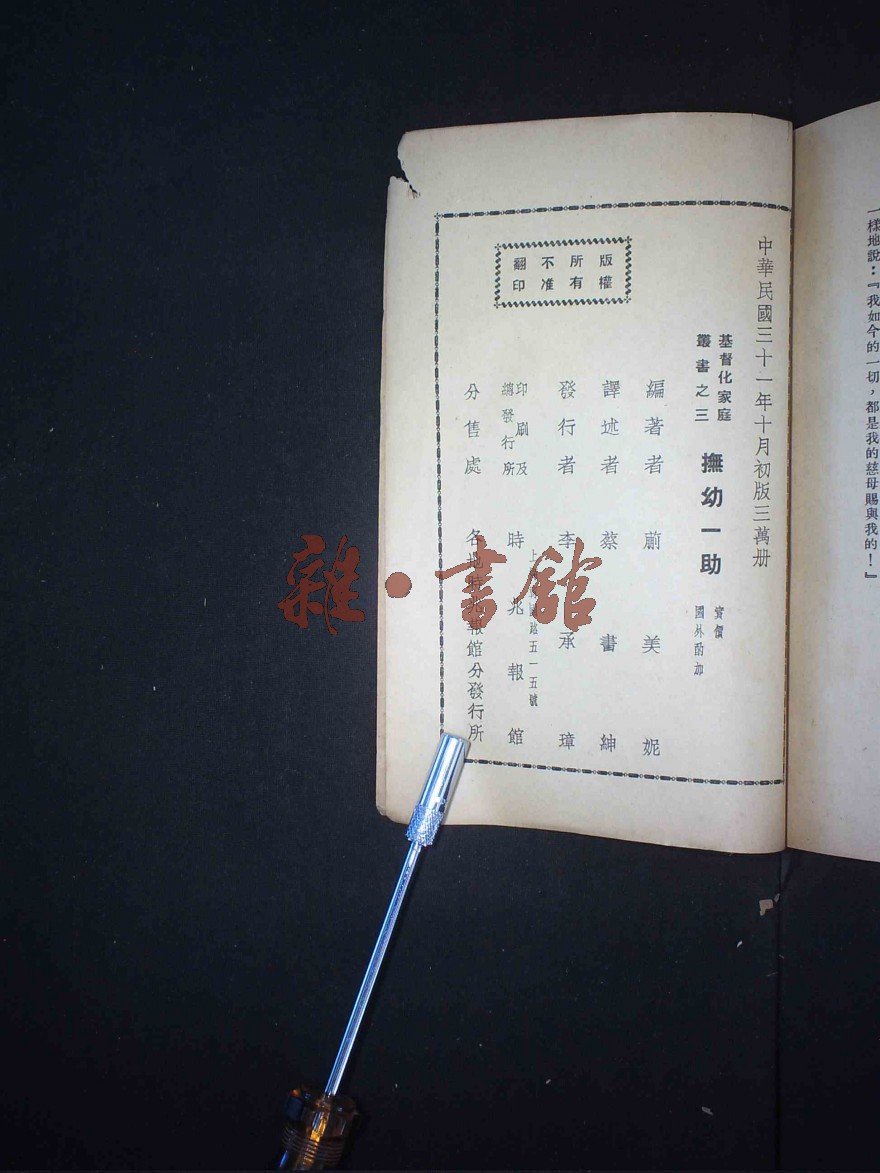 一樣地說：『我如今的一切，都是我的慈母賜與我的！』
中華民國三十一年十月初版三萬册
基督化家庭
叢書之三
撫幼一助
實價
國外酌加
編著者 蒯美妮
譯述者 蔡書紳
發行者 李承璋
印刷及
總發行所
時兆報館
路五一五號
分售處 各地時兆報館分發行所
版權
所有
不准
翻印
雜·書館